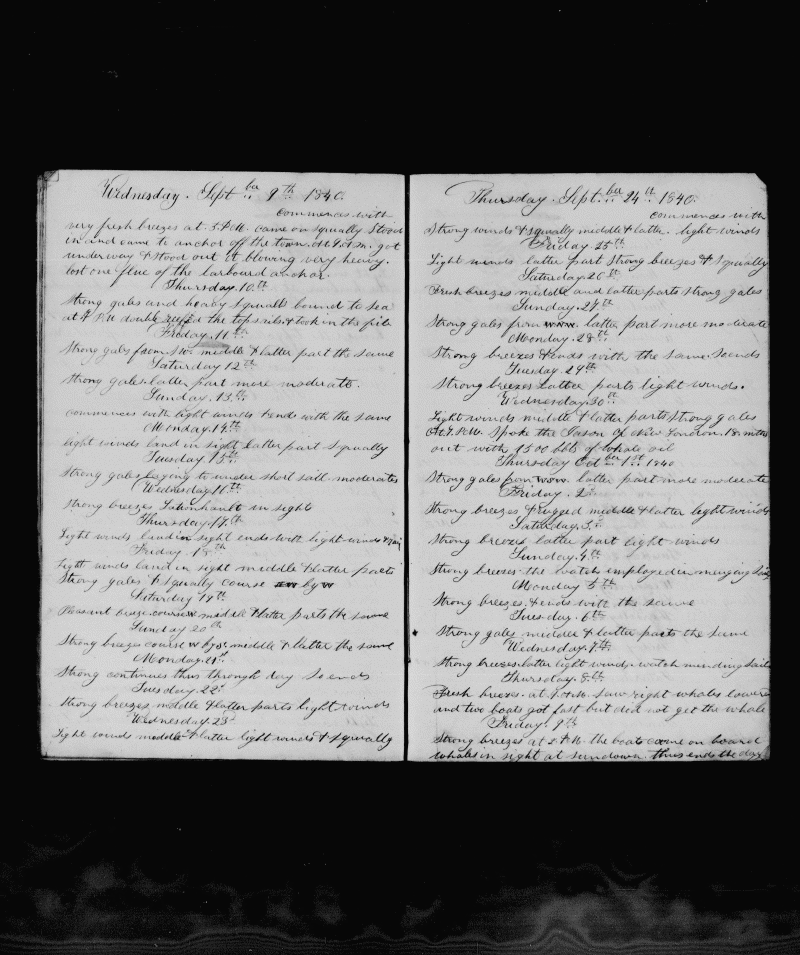 Wednesday. Sept ber 9th 1840.
commences with
very fresh breezes at 3. P.M. came on squally stood
in and came to anchor off the town. At 9. A.M. got
underway & stood out it blowing very heavy.
lost one flue of the larbourd anchor.
Thursday. 10th
Strong gales and heavy squalls bound to sea
at 4 P.M double reefed the topsails & took in the gib
Friday. 11th
Strong gales from middle & latter part the same
Saturday 12th
Strong gales. latter part more moderate.
Sunday. 13th
commences with light winds & ends with the same
Monday. 14th
light winds land in sight latter part squally
Tuesday. 15th
Strong gales laying to under short sail moderates
Wednesday 16th
Strong breezes in sight
Thursday. 17th
Light winds land in sight ends with light winds &
Friday. 18th
Light winds land in sight middle & latter parts
Strong gales & squally course by W
Saturday 19th
Pleasant course W middle & latter parts the same
Sunday 20th
Strong breezes course W by S. middle & latter the same
Monday. 21st
Strong continues thus through day so ends
Tuesday. 22d
Strong breezes middle & latter parts light winds
Wednesday 23d
Light winds middle & latter light winds & squally
Thursday. Sept. ber 24th 1840.
commences with
Strong winds & squally middle & latter. light winds
Friday. 25th
Light winds latter part Strong breezes & squally
Saturday. 26th
Fresh breezes middle and latter parts strong gales
Sunday. 27th
Strong gales from WNW. latter part more moderate
Monday. 28th
Strong breezes & ends with the same. So ends
Tuesday. 29th
Strong breezes Latter parts light winds.
Wednesday. 30th
Light winds middle & latter parts strong gales
At P.M. Spoke the Jason of New London. 18 mths
out with 1500 bbls of whale oil
Thursday Oct ber 1st 1840
Strong gales from latter part more moderate
Friday. 2d
Strong breezes & rugged middle & latter light winds
Saturday. 3d
Strong breezes latter part light winds
Sunday. 4th
Strong breezes. the watch employed in
Monday 5th
Strong breezes. & ends with the same
Tuesday. 6th
Strong gales middle & latter parts the same
Wednesday. 7th
Strong breezes. latter light winds. watch mending sails
Thursday. 8th
Fresh breezes. at saw right whales lowered
and two boats got fast but did not get the whale
Friday. 9th
Strong breezes at 2 P.M. the boats came on board
whales in sight at sundown. thus ends the day